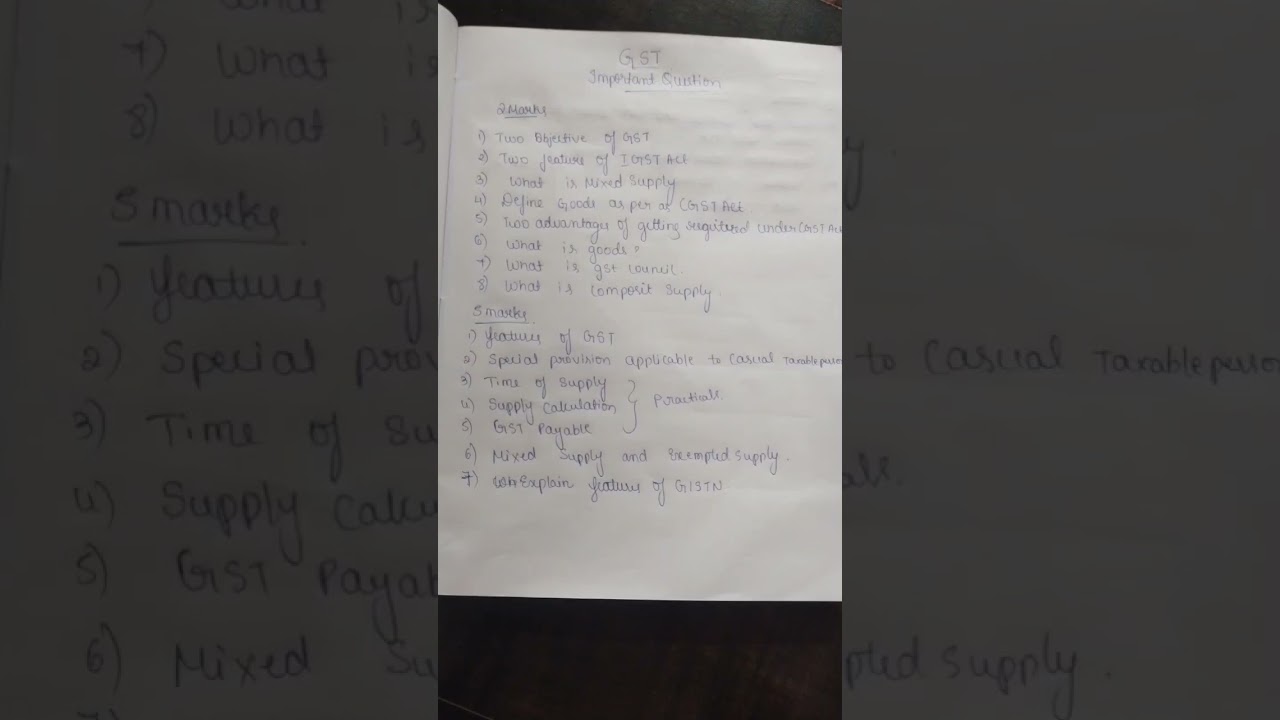 GST
Important Question
2 Marks
1) Two Objective of GST
2) Two feature of IGST Act
3) What is Mixed Supply
4) Define Goods as per as CGST Act.
5) Two advantages of getting registered under CGST Act
6) What is goods?
7) What is gst council.
8) What is Composit Supply.
5 marks
1) features of GST
2) Special provision applicable to Casual Taxable person
3) Time of Supply
4) Supply Calculation } Practicals.
5) GST Payable
6) Mixed Supply and Exempted Supply.
7) Explain features of GSTN.